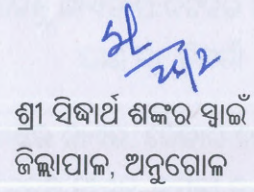 24/2
ଶ୍ରୀ ସିଦ୍ଧାର୍ଥ ଶଙ୍କର ସ୍ୱାଇଁ
ଜିଲ୍ଲାପାଳ, ଅନୁଗୋଳ